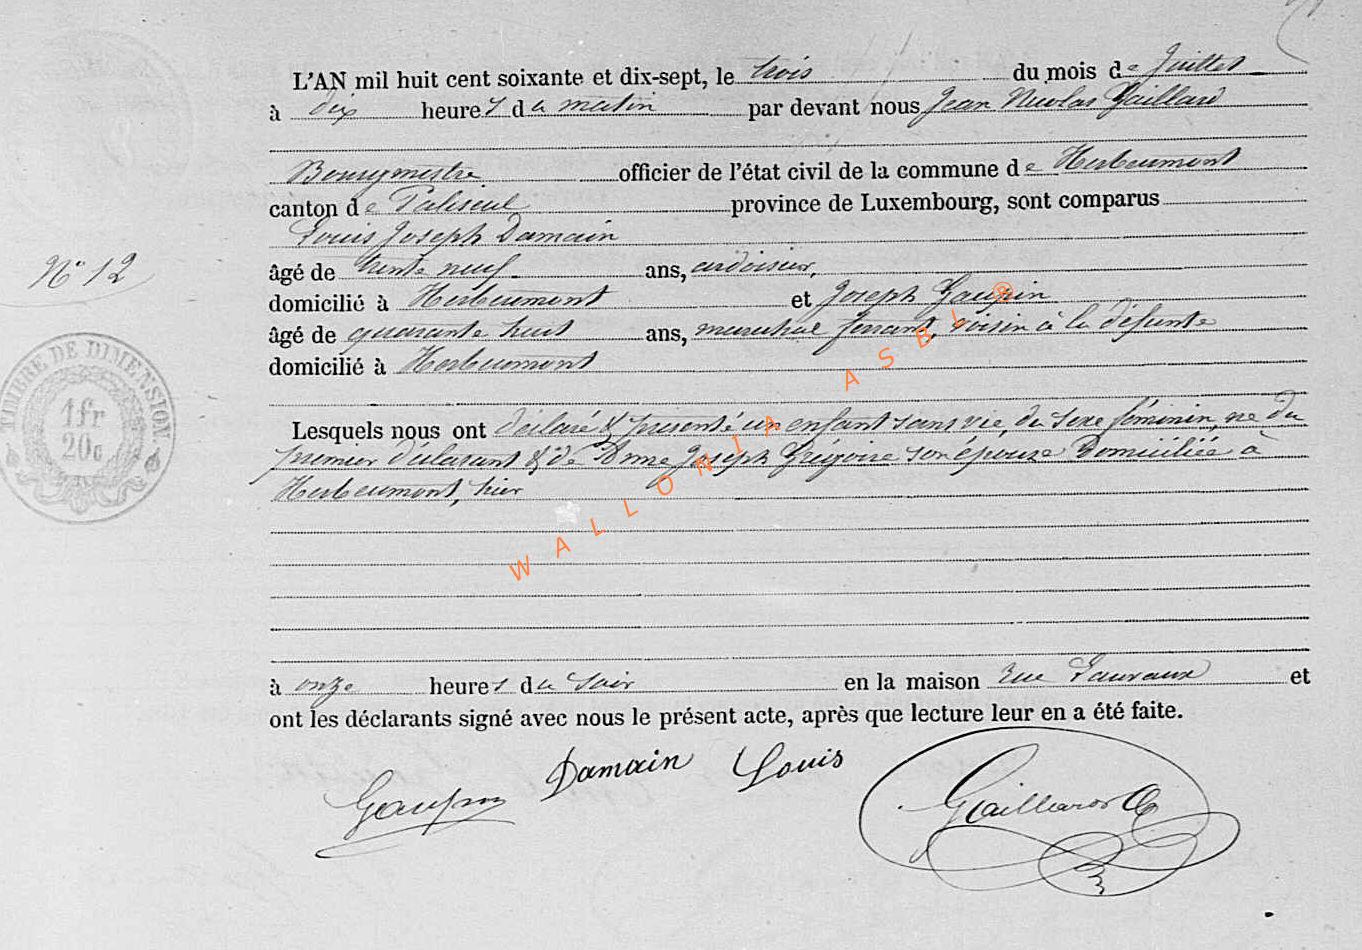 L'AN mil huit cent soixante et dix-sept, le trois du mois de Juillet
à dix heures du matin par devant nous Jean Nicolas Gaillard
Bourgmestre officier de l'état civil de la commune de Herbeumont
canton de Paliseul province de Luxembourg, sont comparus
Louis Joseph Damain
N° 12
âgé de trente neuf ans, ardoisier,
domicilié à Herbeumont et Joseph Gaupin
âgé de quarante huit ans, marechal ferrant, voisin à la défunte
domicilié à Herbeumont
TIMBRE DE DIMENSION.
1fr
20c
Lesquels nous ont déclaré & presenté un enfant sans vie, du sexe féminin, né du
premier déclarant & de Anne Joseph Grégoire son épouse Domiciliée à
Herbeumont, hier
WALLONIA ASBL ®
à onze heures du Soir en la maison rue et
ont les déclarants signé avec nous le présent acte, après que lecture leur en a été faite.
Gaupin Damain Louis Gaillard